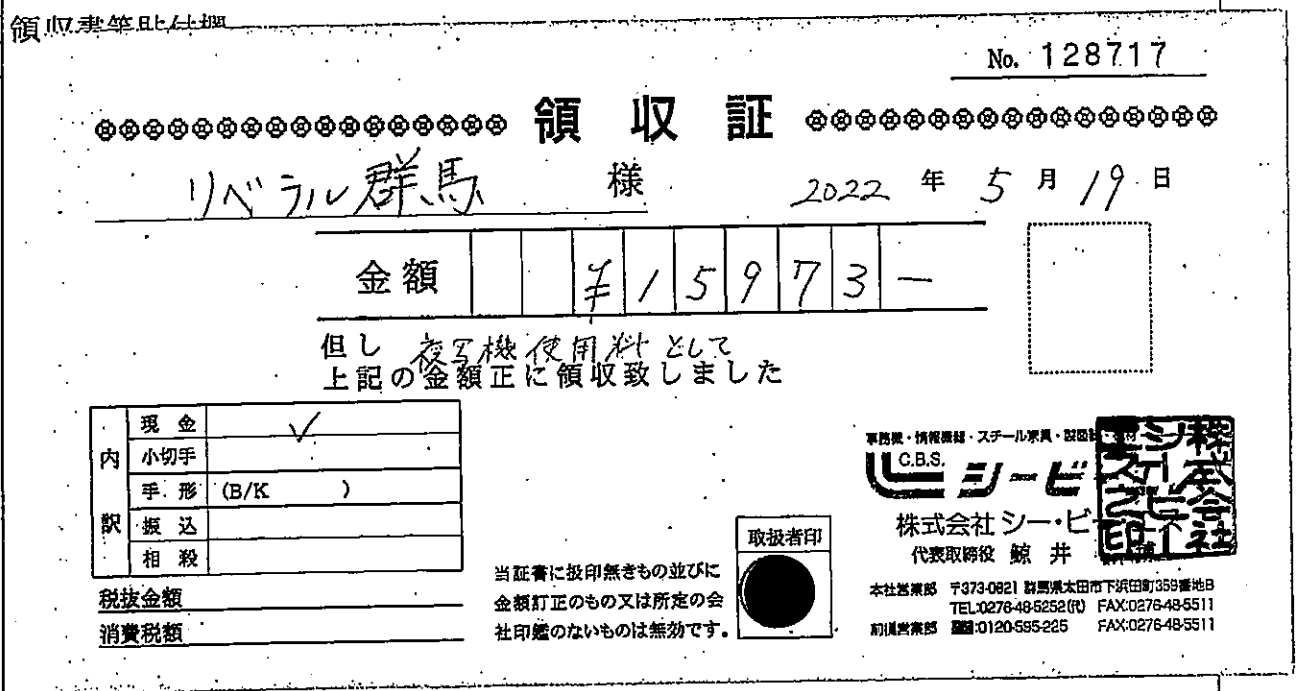 領収書等貼付欄
No. 128717
領収証
リベラル群馬 様 2022年5月19日
金額 ¥15973-
但し 複写機使用料として
上記の金額正に領収致しました
内訳
現金 ✓
小切手
手形 (B/K )
振込
相殺
税抜金額
消費税額
当証書に扱印無きもの並びに
金額訂正のもの又は所定の会
社印鑑のないものは無効です。
取扱者印
事務機・情報機器・スチール家具・設図
C.B.S.
シービー
株式会社 シー・ビー
代表取締役 鯨井
株式会社シービーエス之印
本社営業部 〒373-0821 群馬県太田市下浜田町359番地B
TEL:0276-48-5252(代) FAX:0276-48-5511
前橋営業部 :0120-595-225 FAX:0276-48-5511